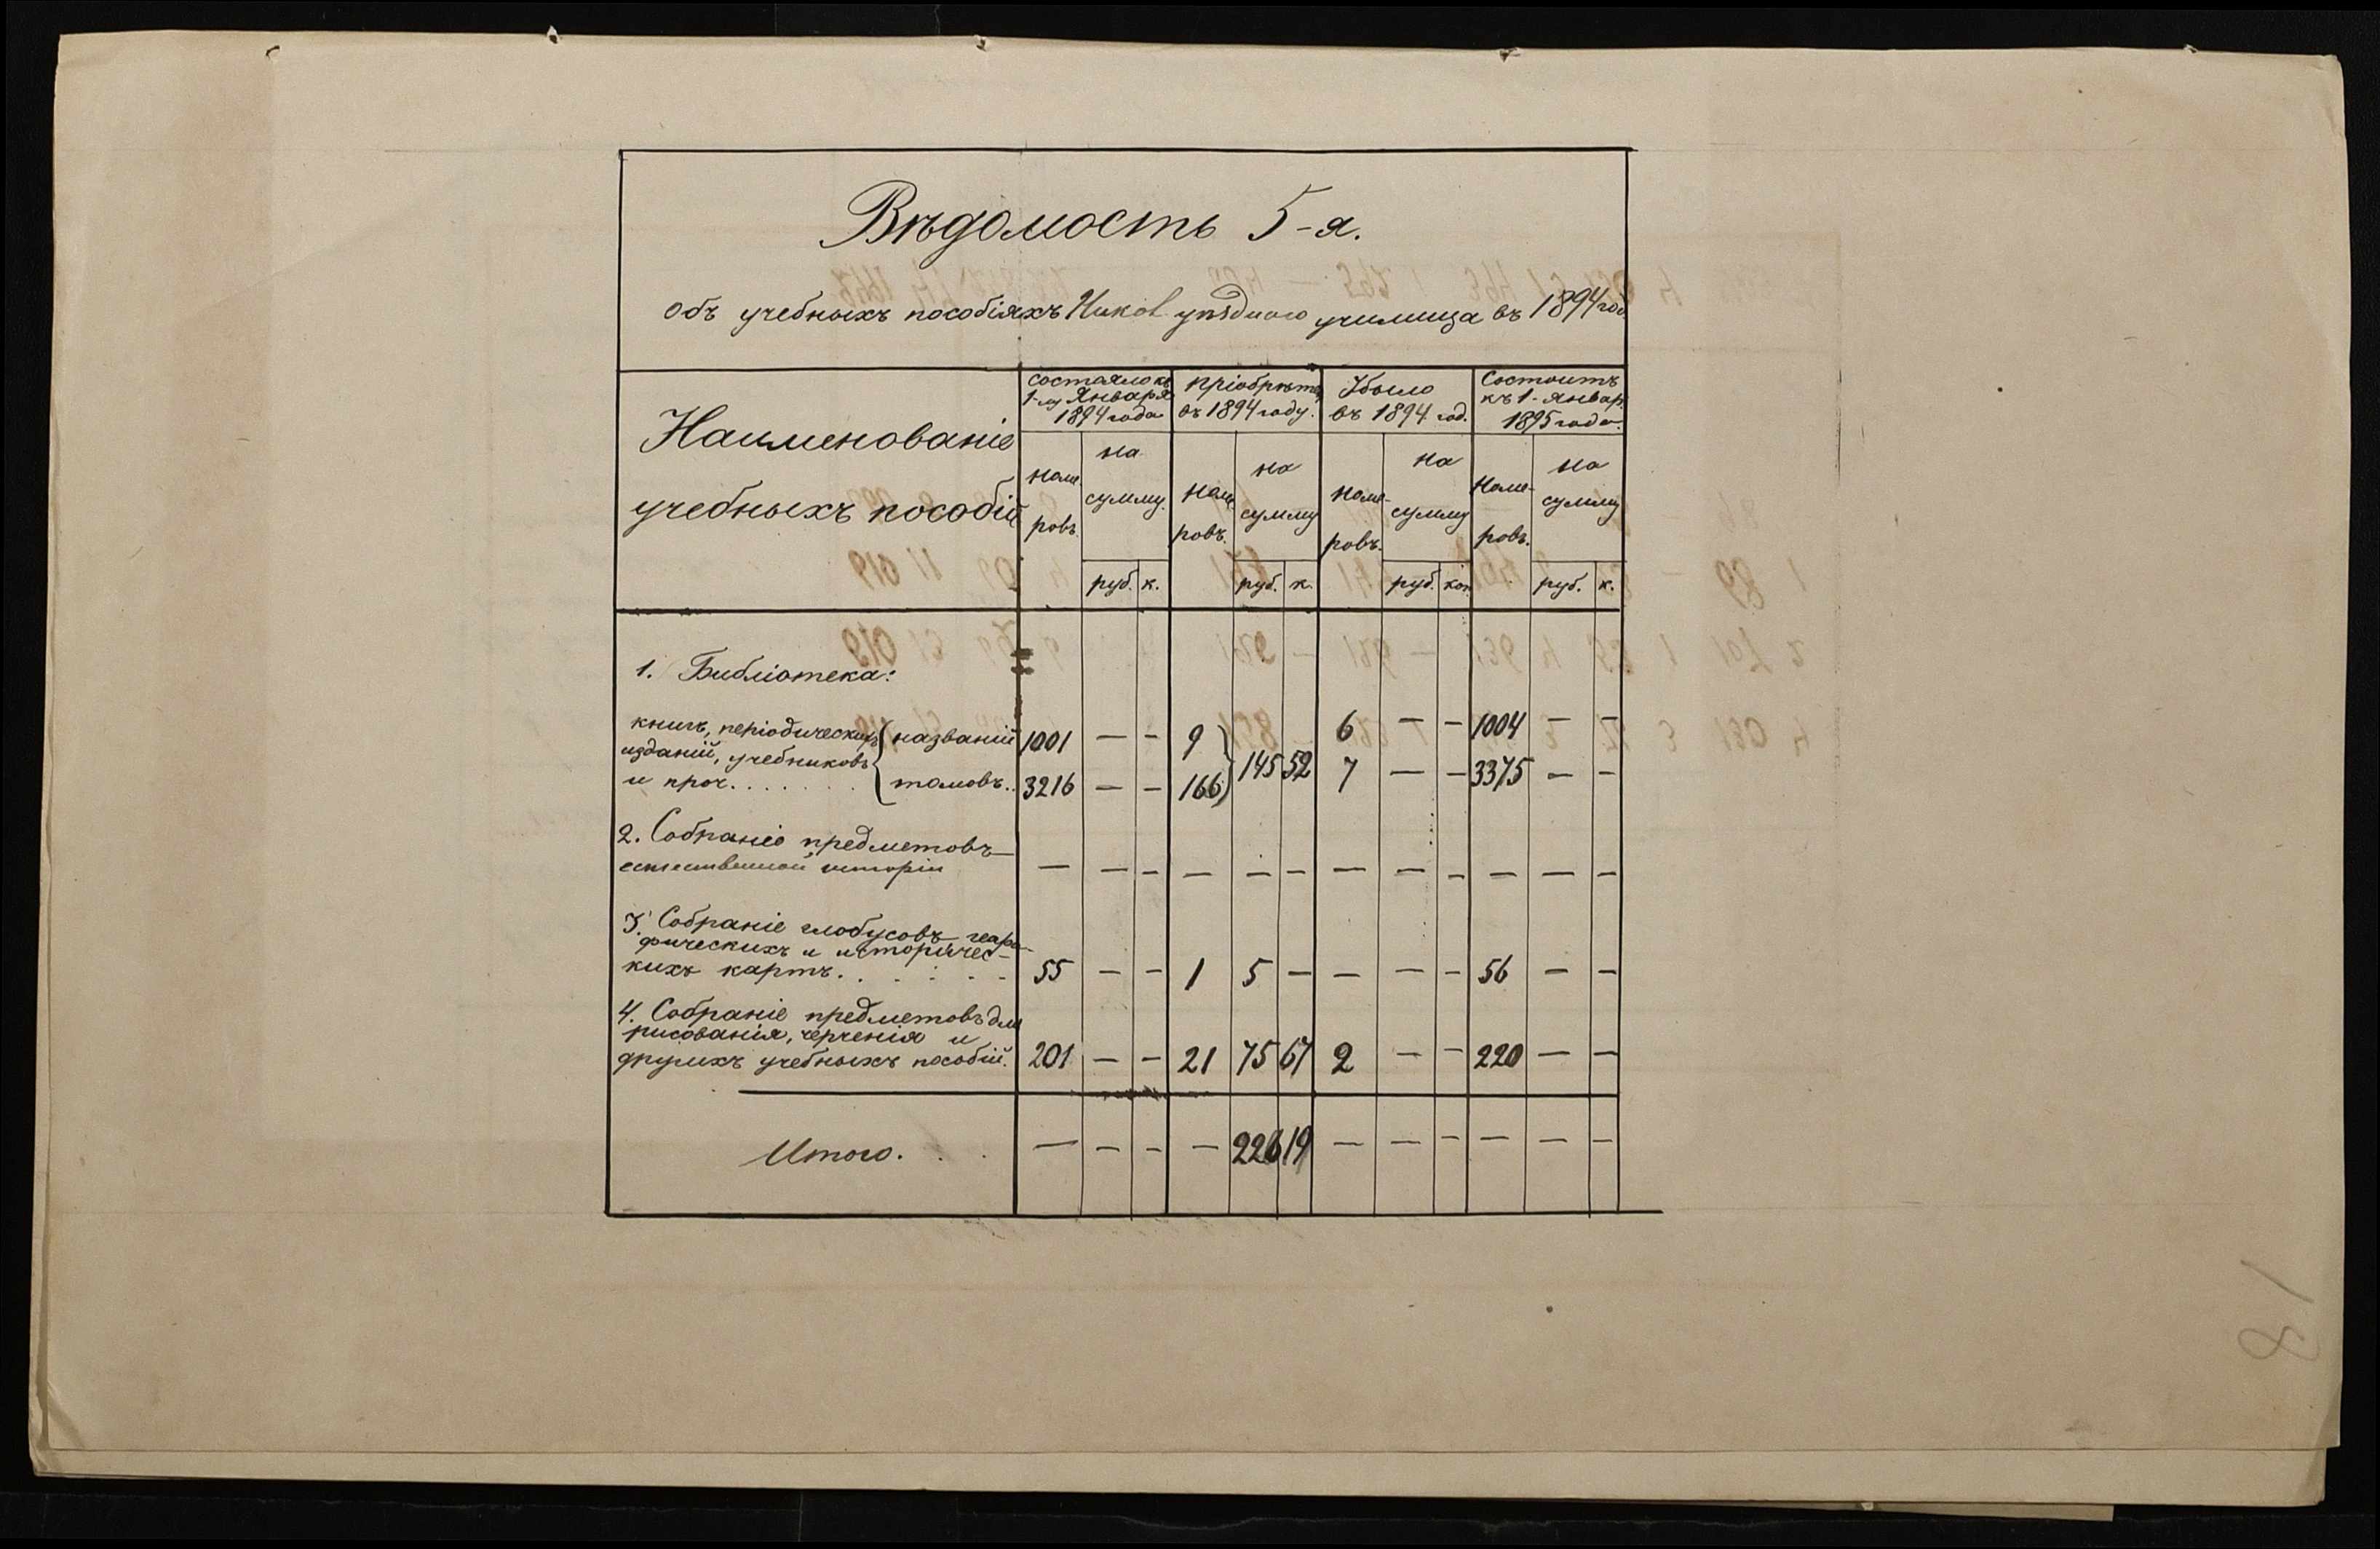 Вѣдомость 5-я.
объ учебныхъ пособіяхъ Никол. уѣзднаго училища въ 1894 год
Наименованіе учебныхъ пособій
Состояло къ 1-му Января 1894 года
Пріобрѣтено въ 1894 году.
Убыло въ 1894 год.
Состоитъ къ 1-январ. 1895 года.
Номе-ровъ. на сумму. Номе-ровъ. на сумму Номе-ровъ. на сумму Номе-ровъ. на сумму
руб. к. руб. к. руб. коп. руб. к.
1. Библіотека:
книгъ, періодическихъ изданій, учебниковъ и проч. . . . . . .
названій 1001 — — 9 6 — — 1004 — —
145 52
томовъ.. 3216 — — 166 7 — — 3375 — —
2. Собраніе предметовъ
естественной исторіи — — — — — — — — — — — —
3. Собраніе глобусовъ, геогра-
фическихъ и историчес-
кихъ картъ. . . . . . 55 — — 1 5 — — — — 56 — —
4. Собраніе предметовъ для
рисованія, черченія и
другихъ учебныхъ пособій. 201 — — 21 75 67 2 — — 220 — —
Итого. . . — — — — 226 19 — — — — — —
18